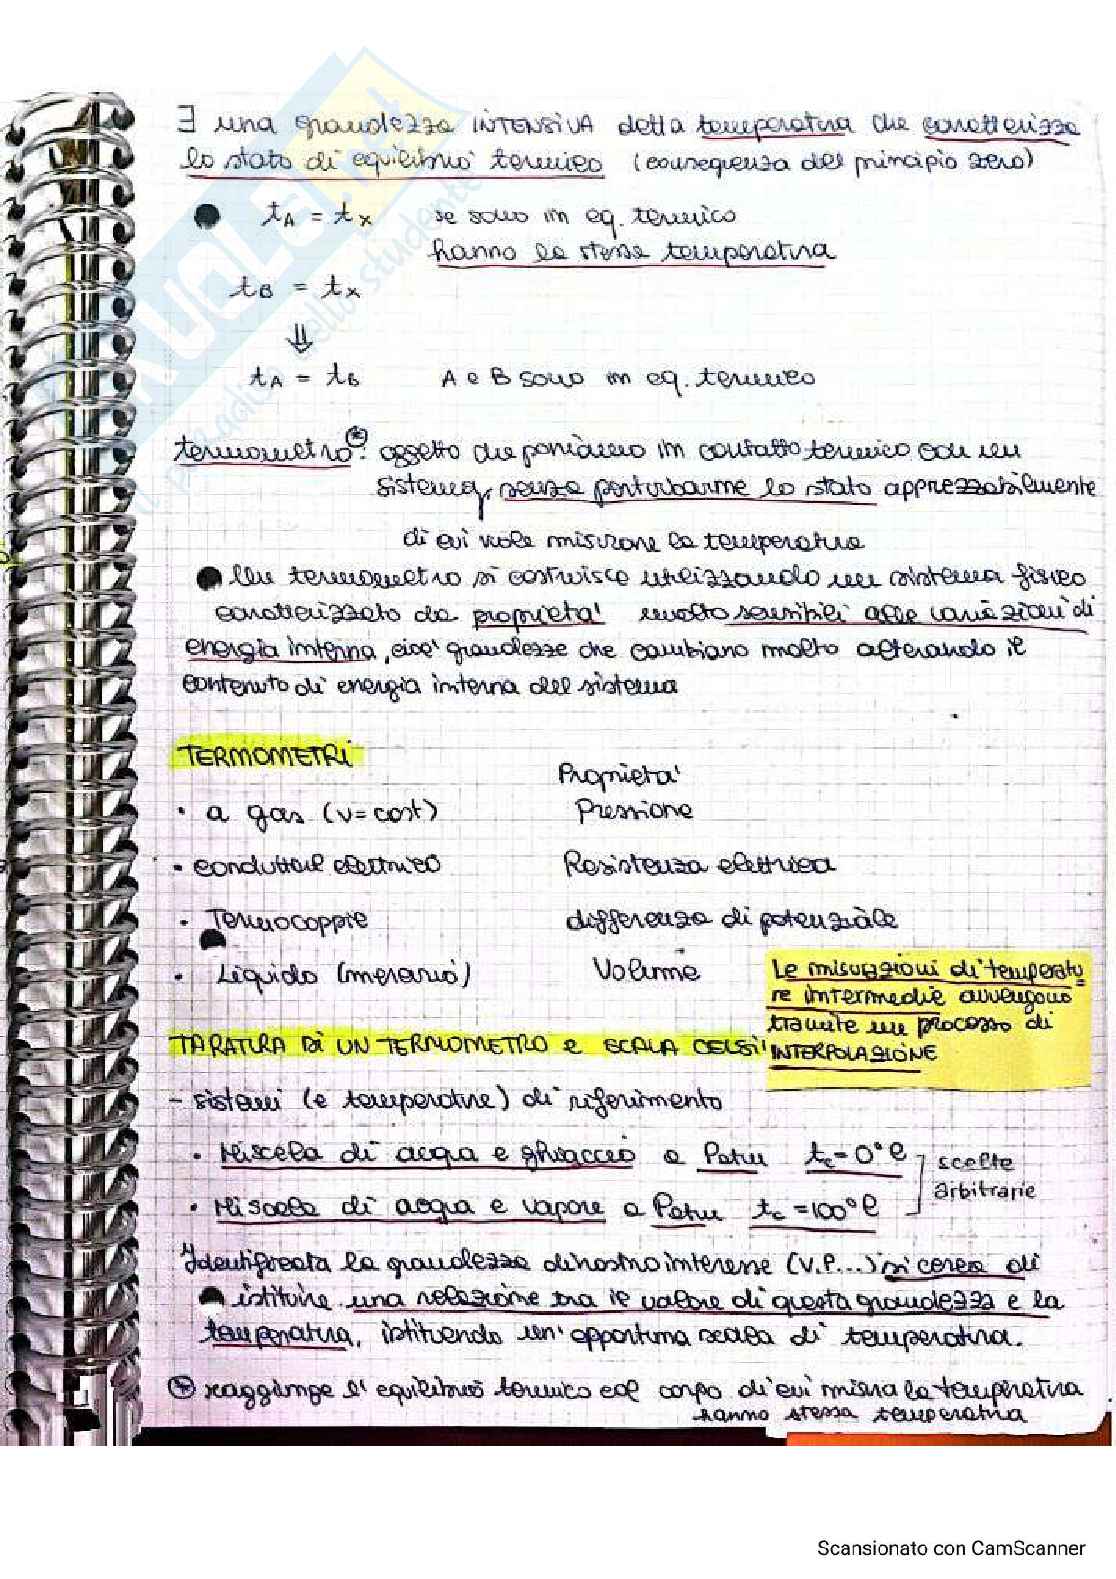 ∃ una grandezza INTENSIVA detta temperatura che caratterizza
lo stato di equilibrio termico (conseguenza del principio zero)
tA = tx se sono in eq. termico
hanno la stessa temperatura
tB = tx
⇓
tA = tB A e B sono in eq. termico
termometro⊛: oggetto che poniamo in contatto termico con un
sistema, senza perturbarne lo stato apprezzabilmente
di cui vole misurare la temperatura
Un termometro si costruisce utilizzando un sistema fisico
caratterizzato da proprietà molto sensibili alle variazioni di
energia interna, cioè grandezze che cambiano molto alterando il
contenuto di energia interna del sistema
TERMOMETRI
Proprietà
• a gas (V=cost) Pressione
• conduttore elettrico Resistenza elettrica
• Termocoppie differenza di potenziale
• Liquido (mercurio) Volume
Le misurazioni di temperatu
re intermedie avvengono
tramite un processo di
INTERPOLAZIONE
TARATURA DI UN TERMOMETRO e SCALA CELSI
- sistemi (e temperature) di riferimento
• Miscela di acqua e ghiaccio a Patm tc=0°C
• Miscela di acqua e vapore a Patm tc=100°C
scelte
arbitrarie
Identificata la grandezza di nostro interesse (V.P...) si cerca di
istituire una relazione tra il valore di questa grandezza e la
temperatura, istituendo un'opportuna scala di temperatura.
⊛ raggiunge l'equilibrio termico col corpo di cui misura la temperatura
hanno stessa temperatura
Scansionato con CamScanner